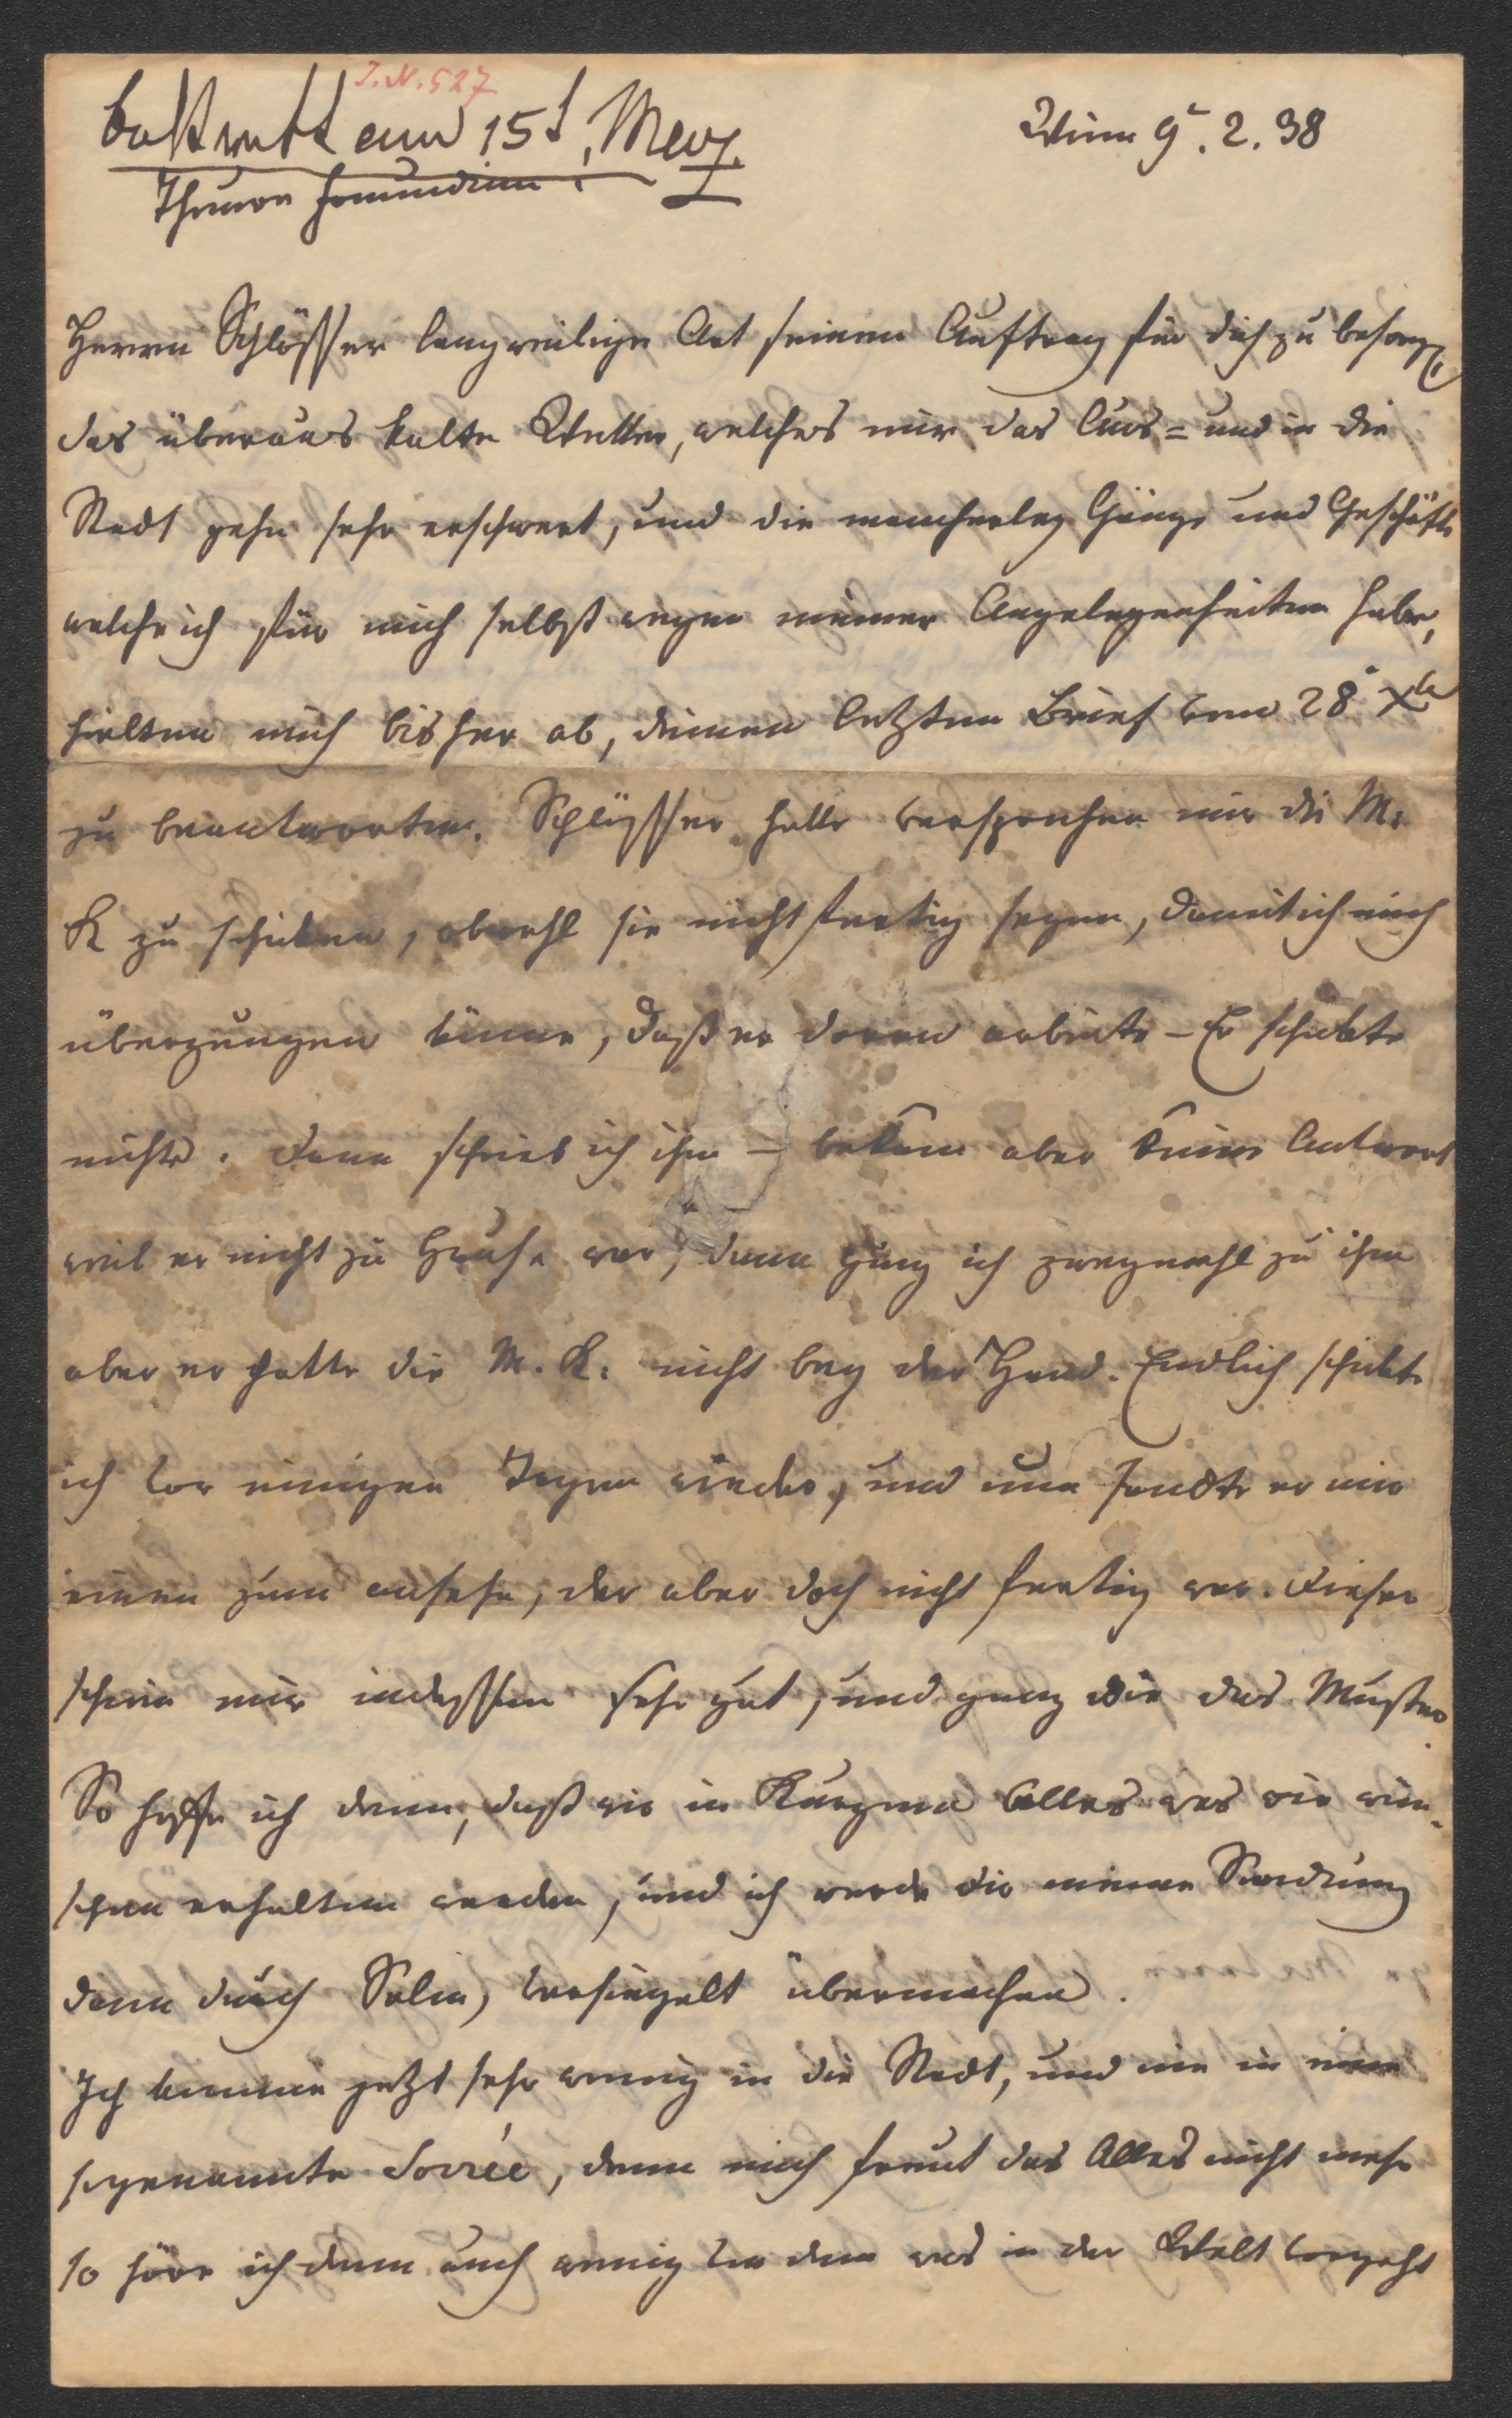 J. N. 527
Wien 9. 2. 38
am 15t. März
Theuere Freundinn!
Herrn Schlösser langweilige Art seinen Auftrag für dich zu besorgen,
das überaus kalte Wetter, welches mir das Aus= und in die
Stadt gehn sehr erschwert, und die mancherley Gänge und Geschäfte
welche ich für mich selbst wegen meiner Angelegenheiten habe,
hielten mich bisher ab, deinen letzten Brief vom 28 Xbr
zu beantworten. Schlösser hatte versprochen mir die M.
K zu schicken, obwohl sie nicht fertig seyen, damit ich mich
überzeugen könne, daß er daran arbeite – Er schickte
nichts. Dann schrieb ich ihm – bekam aber keine Antwort
weil er nicht zu Hause war, dann ging ich zweymahl zu ihm
aber er hatte die M. K. nicht bey der Hand. Endlich schickte
ich vor einigen Tagen wieder, und nun sandte er mir
einen zum ansehn, der aber doch nicht fertig war. Dieser
schien mir indessen sehr gut, und ganz wie das Muster.
So hoffe ich denn, daß wir in Kurzem Alles was wir wün-
schen erhalten werden, und ich werde dir meine Sendung
dann durch Salm, versiegelt übermachen.
Ich komme jetzt sehr wenig in die Stadt, und nie in eine
sogenannte Soirée, denn mich freut das Alles nicht mehr
so höre ich denn auch wenig von dem was in der Welt vorgeht